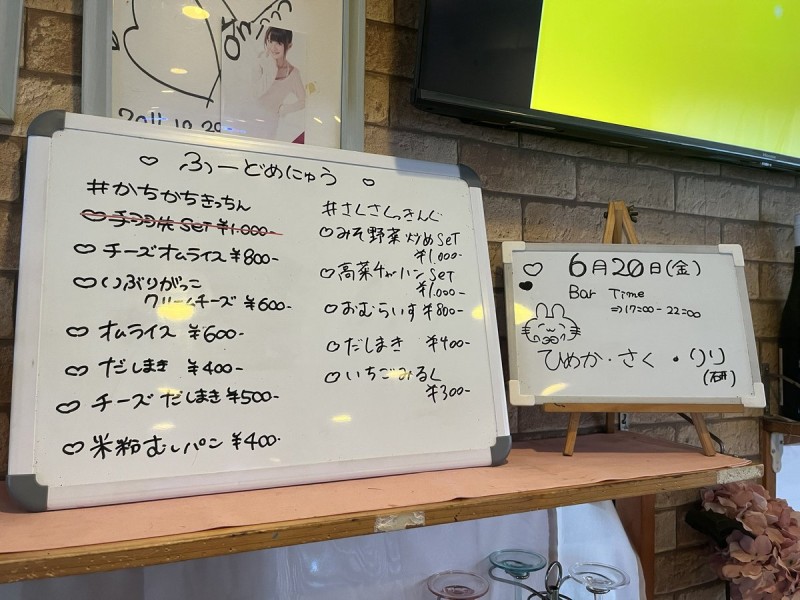 2011.10.29
ふーどめにゅう
#かちかちきっちん
SET ¥1,000-
チーズオムライス ¥800-
いぶりがっこ
クリームチーズ ¥600-
オムライス ¥600-
だしまき ¥400-
チーズだしまき ¥500-
米粉むしパン ¥400-
#さくさくっきんぐ
みそ野菜炒めSET
¥1,000-
高菜チャーハンSET
¥1,000-
おむらいす ¥800-
だしまき ¥400-
いちごみるく
¥300-
6月20日(金)
Bar Time
⇒17:00-22:00
ひめか・さく・りり
(研)